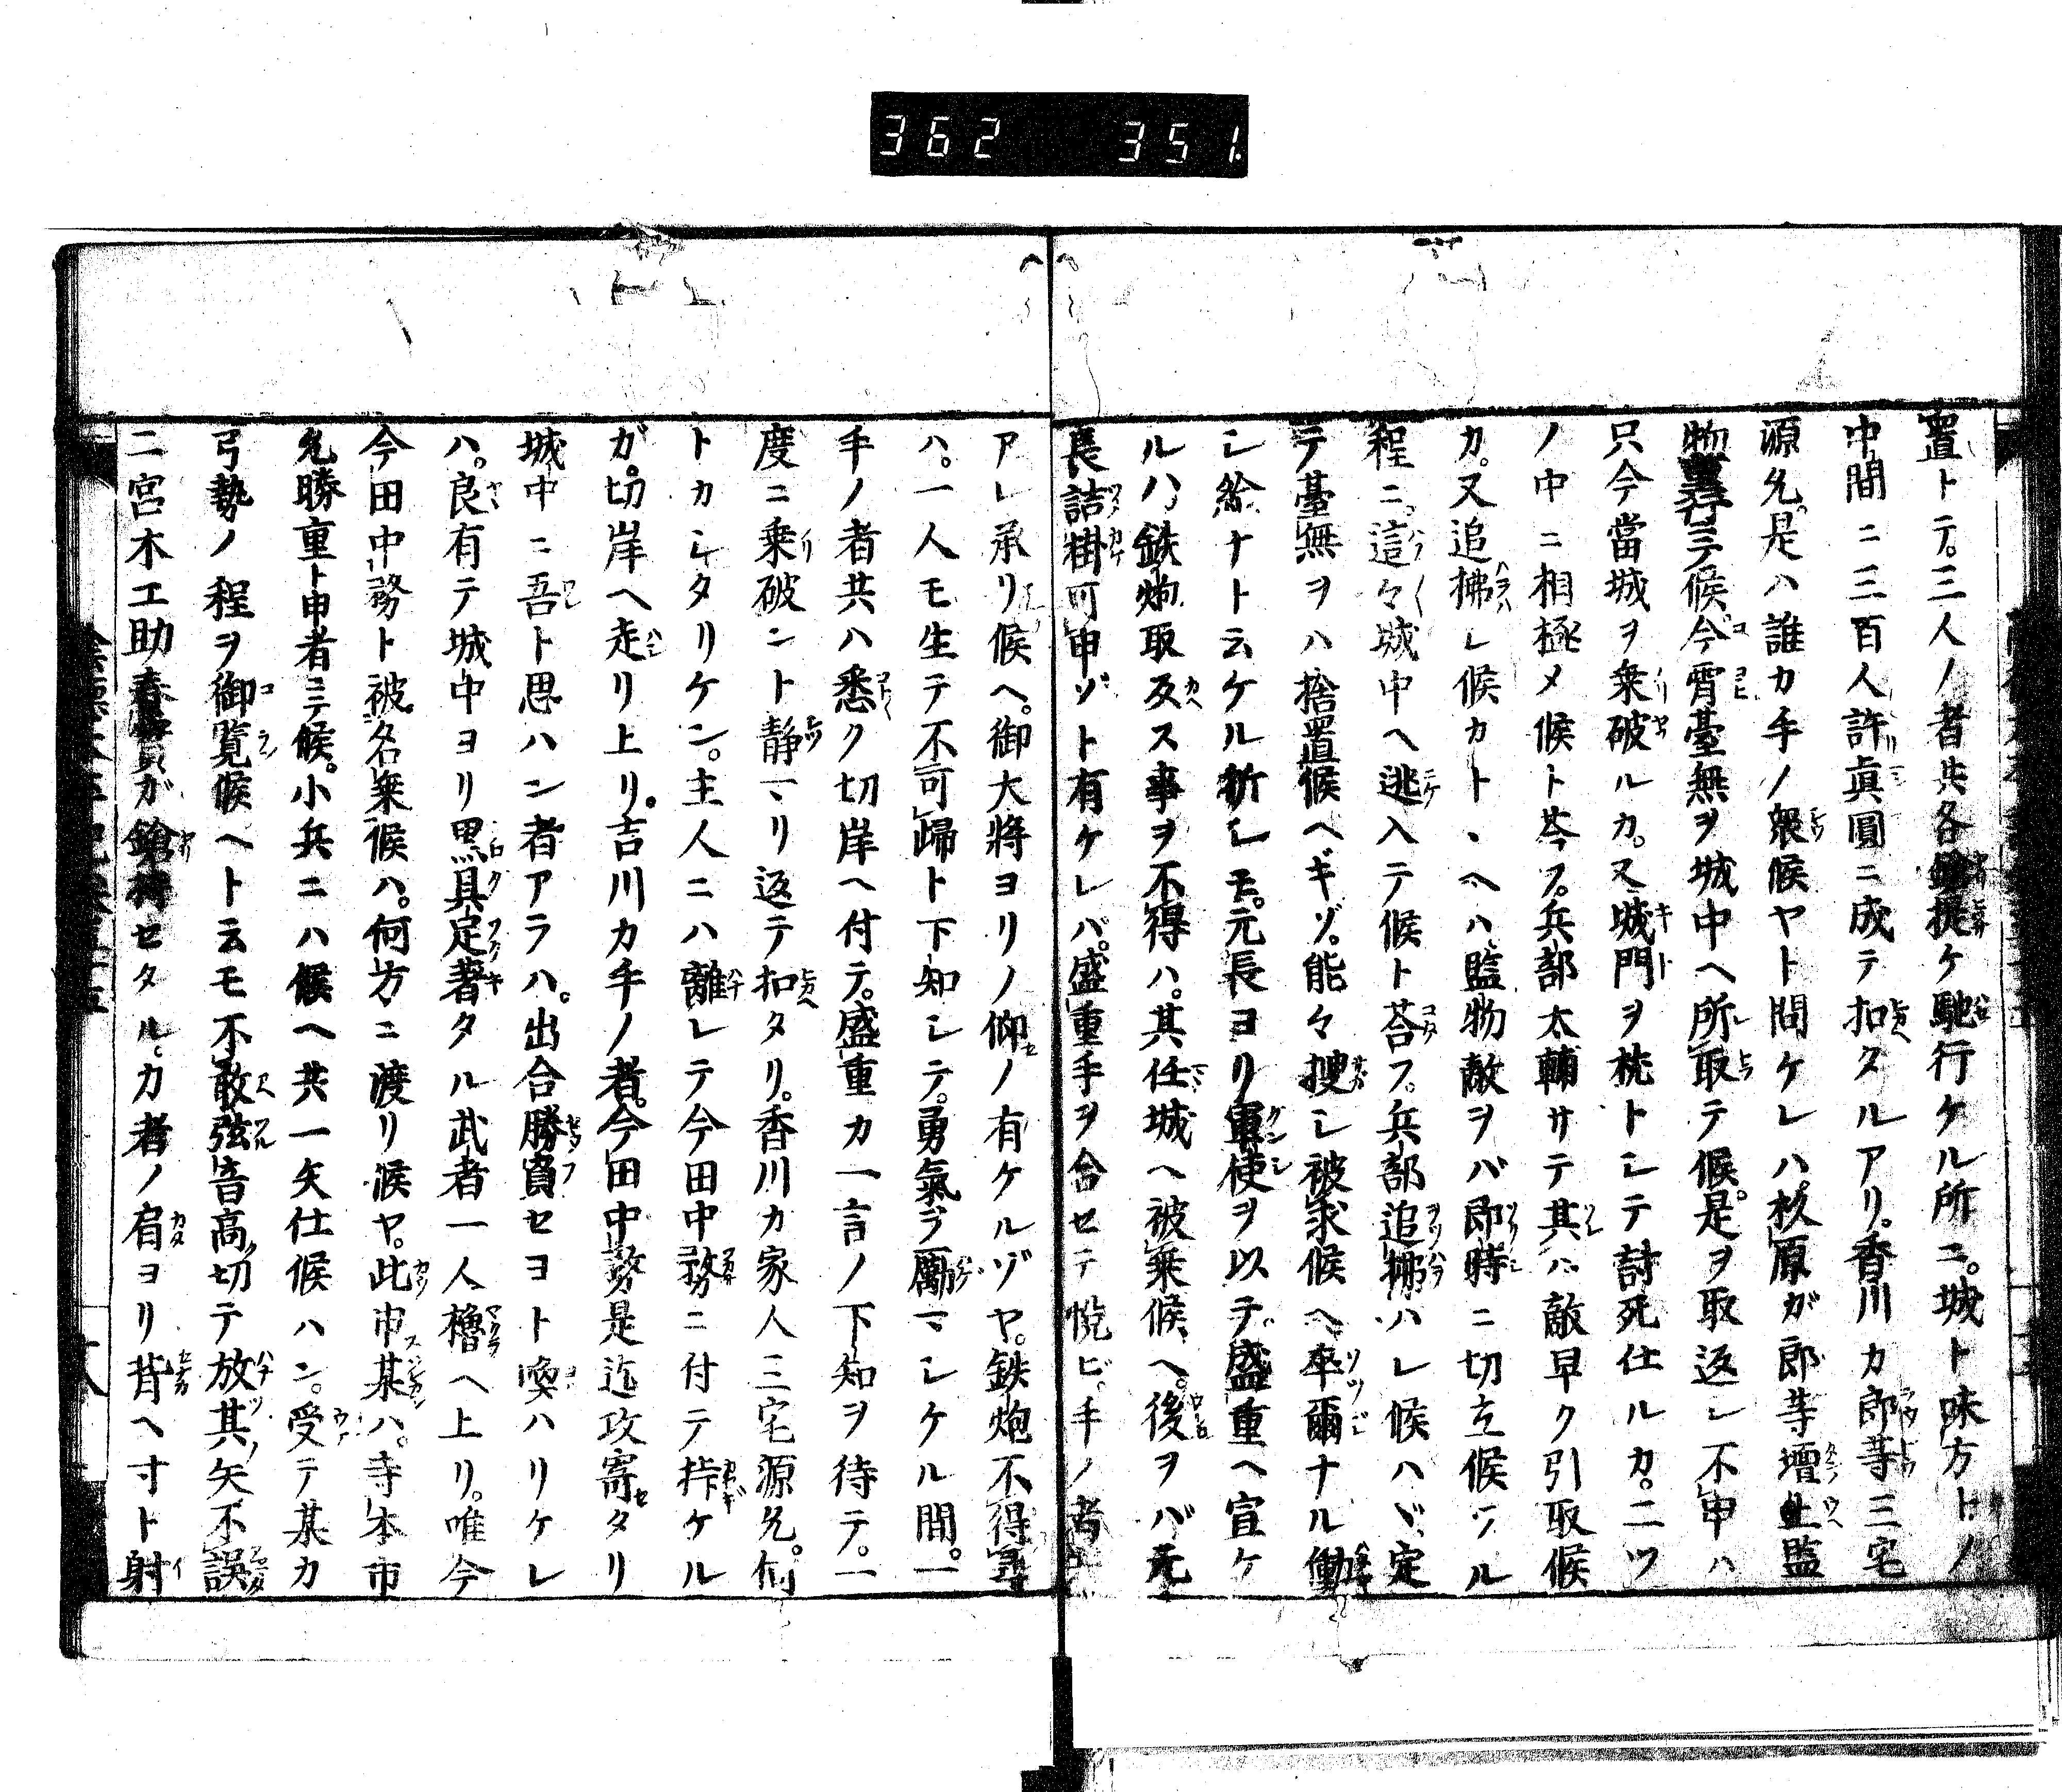 362 351.
置トテ。三人ノ者共各鎗提ケ馳行ケル所ニ。城ト味方トノ
中間ニ三百人許真圓ニ成テ扣タルアリ。香川カ郎等三宅
源允。是ハ誰カ手ノ衆候ヤト問ケレハ。杉原ガ郎等壇上監
物ニテ候。今宵臺無ヲ城中ヘ所取テ候。是ヲ取返シ不申ハ
只今當城ヲ乗破ルカ。又城門ヲ枕トシテ討死仕ルカ。二ツ
ノ中ニ相極メ候ト答フ。兵部太輔サテ其ハ敵早ク引取候
カ。又追拂レ候カトヽヘハ。監物敵ヲバ即時ニ切立候ツル
程ニ。這々城中ヘ逃入テ候ト荅フ。兵部追拂ハレ候ハヾ定
テ臺無ヲハ捨置候ヘギゾ。能々捜シ被求候ヘ率爾ナル働
シ給ナト云ケル折シモ。元長ヨリ軍使ヲ以テ。盛重ヘ宣ケ
ルハ。鉄炮取反ス事ヲ不得ハ。其任城ヘ被乗候ヘ。後ヲバ元
長詰掛可申ゾト有ケレバ。盛重手ヲ合セテ悦ビ。手ノ者
アレ承リ候ヘ。御大將ヨリノ仰ノ有ケルゾヤ。鉄炮不得尋
ハ。一人モ生テ不可歸ト下知シテ。勇氣ヲ勵マシケル間。一
手ノ者共ハ悉ク切岸ヘ付テ。盛重カ一言ノ下知ヲ待テ。一
度ニ乗破ント静マリ返テ扣タリ。香川カ家人三宅源允。何
トカシタリケン。主人ニハ離レテ今田中務ニ付テ挊ケル
ガ。切岸ヘ走リ上リ。吉川カ手ノ者。今田中務是迠攻寄タリ
城中ニ吾ト思ハン者アラハ。出合勝負セヨト喚ハリケレ
ハ。良有テ城中ヨリ黒具足著タル武者一人櫓ヘ上リ。唯今
今田中務ト被名乗候ハ。何方ニ渡リ候ヤ。此申某ハ。寺本市
允勝重ト申者ニテ候。小兵ニハ候ヘ共一矢仕候ハン。受テ某カ
弓勢ノ程ヲ御覧候ヘト云モ不敢弦音高ノ切テ放其ノ矢不誤
二宮木工助春實ガ鎗持セタル。力者ノ肩ヨリ背ヘ寸ト射